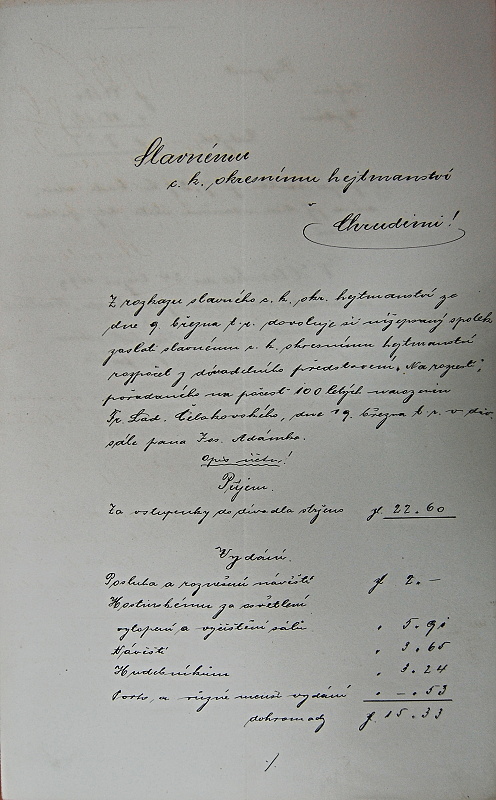 Slavnému
c. k. okresnímu hejtmanství
v
Chrudimi!
Z rozkazu slavného c. k. okr. hejtmanství ze
dne 9. března t. r. dovoluje si nížepsaný spolek
zaslati slavnému c. k. okresnímu hejtmanství
rozpočet z divadelního představení „Na rozcestí",
pořádaného na počest 100 letých narozenin
Fr. Lad. Čelakovského, dne 19. března t. r. v div.
sále pana Jos. Adámka.
Opis účtu!
Příjem.
Za vstupenky do divadla strženo fl. 22.60
Vydání.
Posluha a roznešení návěstí fl 2.–
Hostinskému za osvětlení
vytopení a vyčištění sálu " 5.91
Návěstí " 3.65
Hudebníkům " 3.24
Porto, a různé menší vydání " –.53
dohromady fl. 15.33
./.